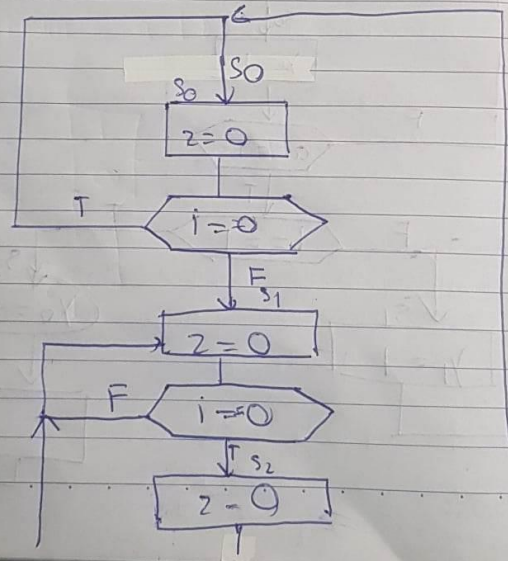 S0
S0
z=0
T
i==0
F
S1
z=0
F
i==0
T
S2
z=0